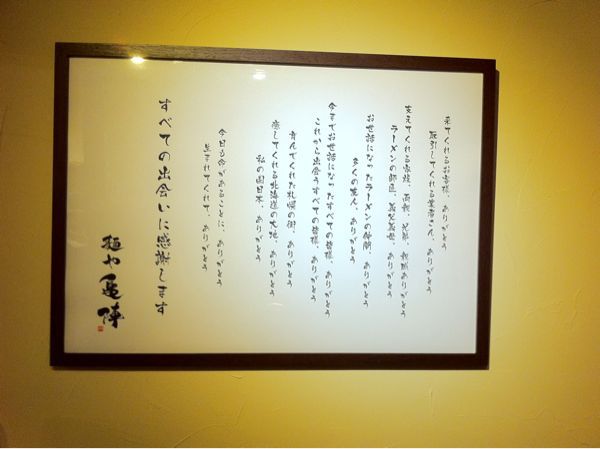 来てくれるお客様、ありがとう
取引してくれる業者さん、ありがとう
支えてくれる家族、両親、兄弟、親戚ありがとう
ラーメンの師匠、ありがとう
お世話になったラーメンの仲間、ありがとう
多くの友人、ありがとう
今までお世話になったすべての皆様、ありがとう
これから出会うすべての皆様、ありがとう
育んでくれた札幌の街、ありがとう
癒してくれる北海道の大地、ありがとう
私の国日本、ありがとう
今日も命があることに、ありがとう
生まれてくれて、ありがとう
すべての出会いに感謝します
麺や